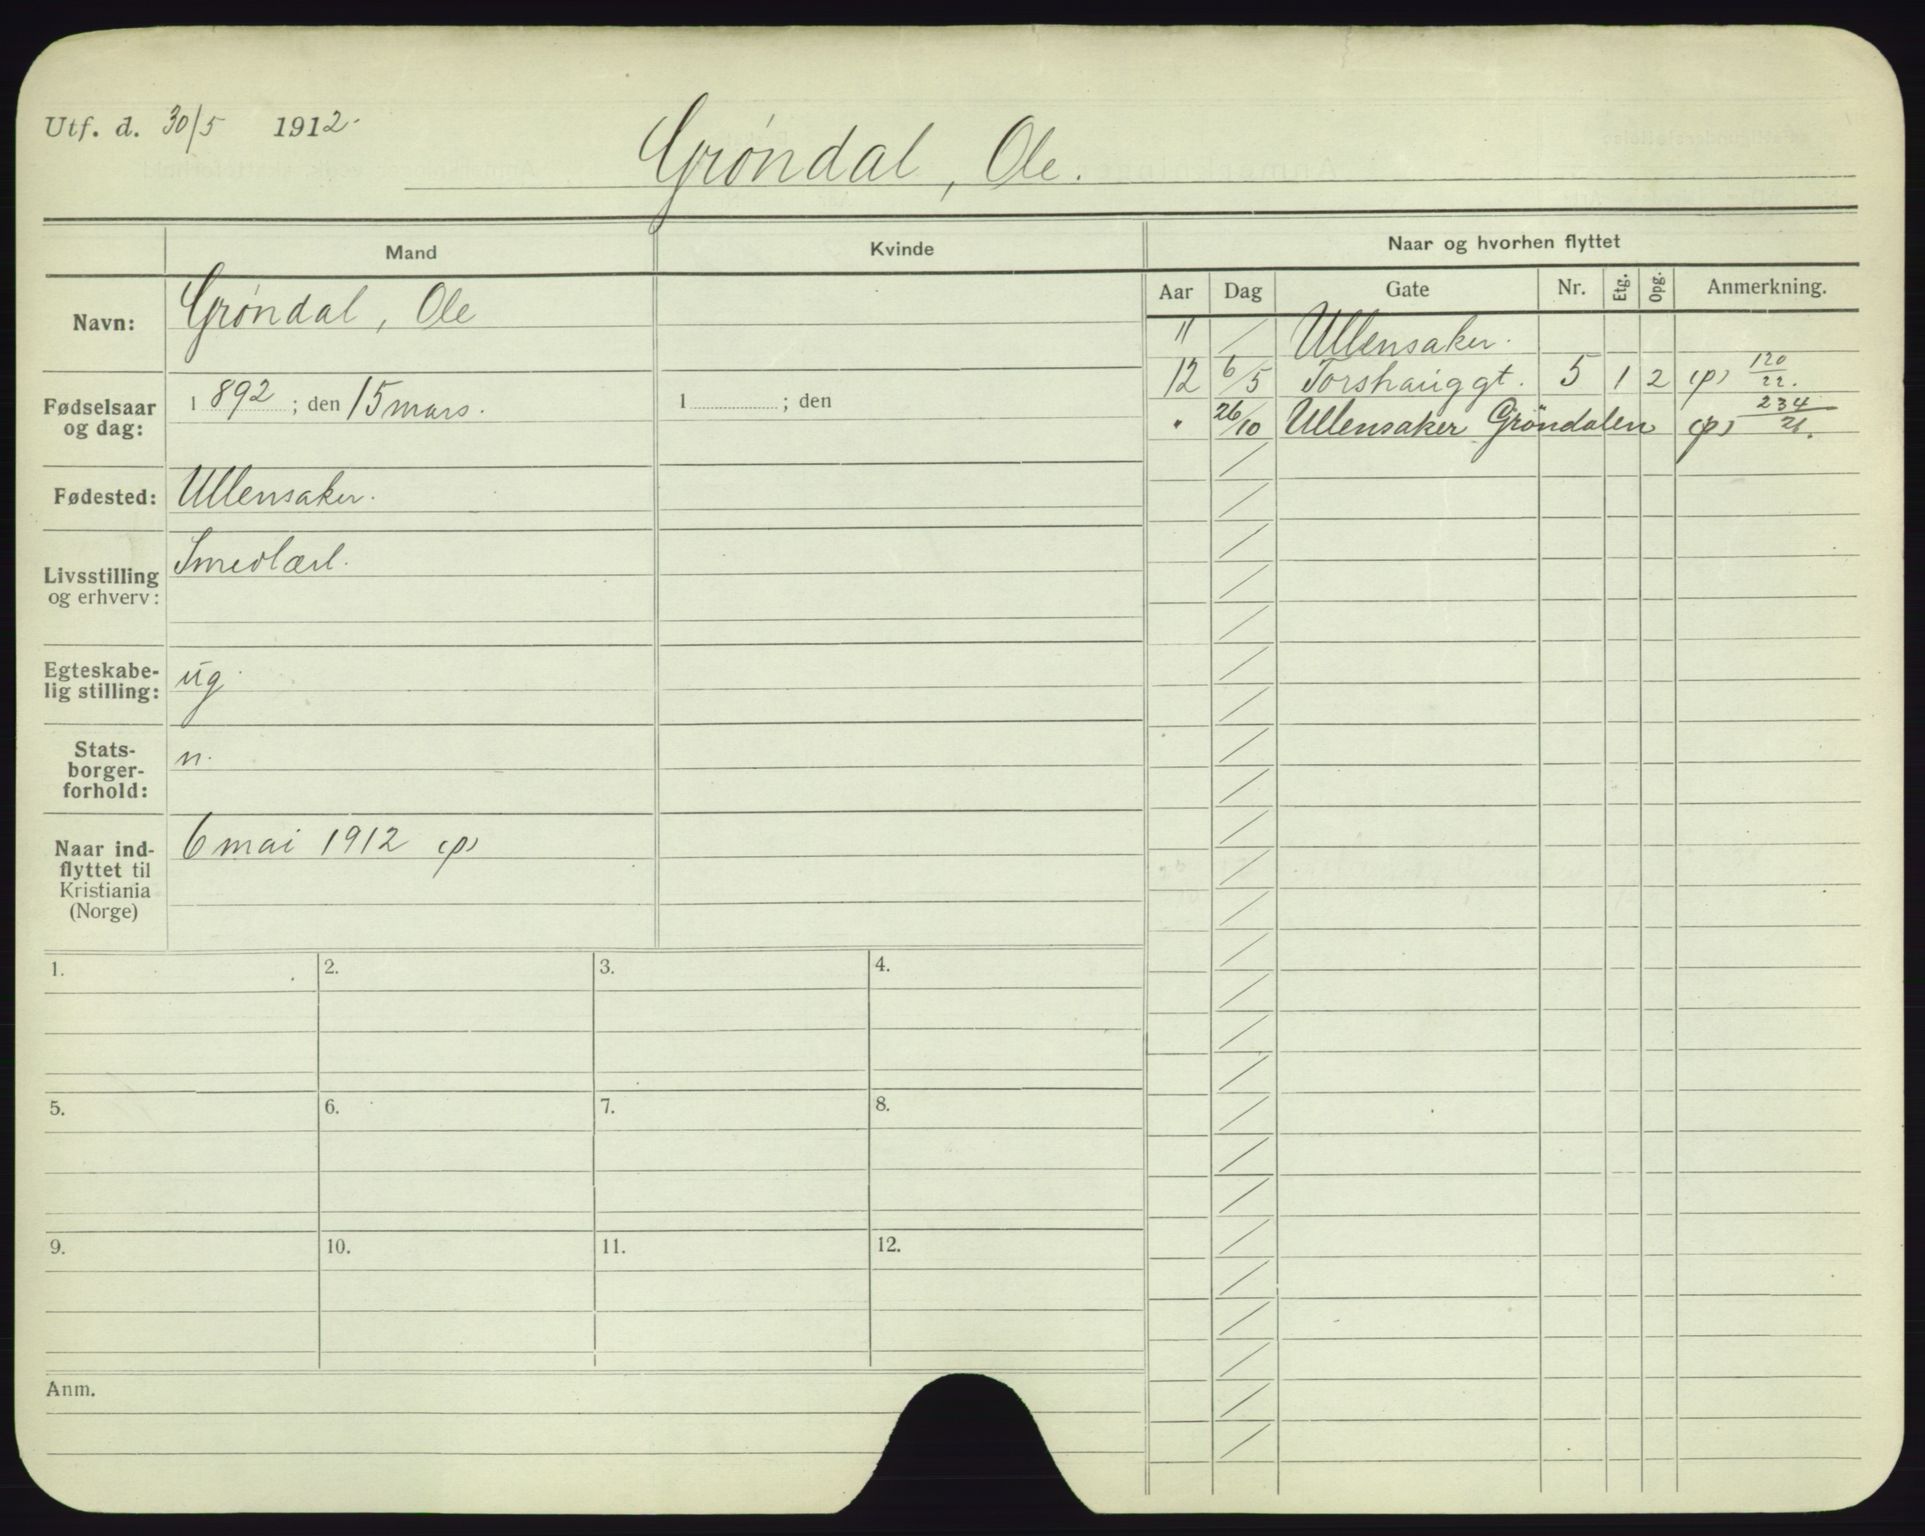 Utf. d. 30/5 1912.
Grøndal, Ole.
Mand
Kvinde
Navn: Grøndal, Ole
Fødselsaar og dag: 1892; den 15 mars.
1 ; den
Fødested: Ullensaker.
Livsstilling og erhverv: Smedlærl.
Egteskabe-
lig stilling: ug.
Stats-
borger-
forhold: n.
Naar ind-
flyttet til
Kristiania
(Norge) 6 mai 1912 (p)
Naar og hvorhen flyttet
Aar Dag Gate Nr. Etg. Opg. Anmerkning.
11 / Ullensaker.
12 6/5 Torshauggt. 5 1 2 (p) 120/22.
" 26/10 Ullensaker Grøndalen (p) 234/21.
1. 2. 3. 4.
5. 6. 7. 8.
9. 10. 11. 12.
Anm.